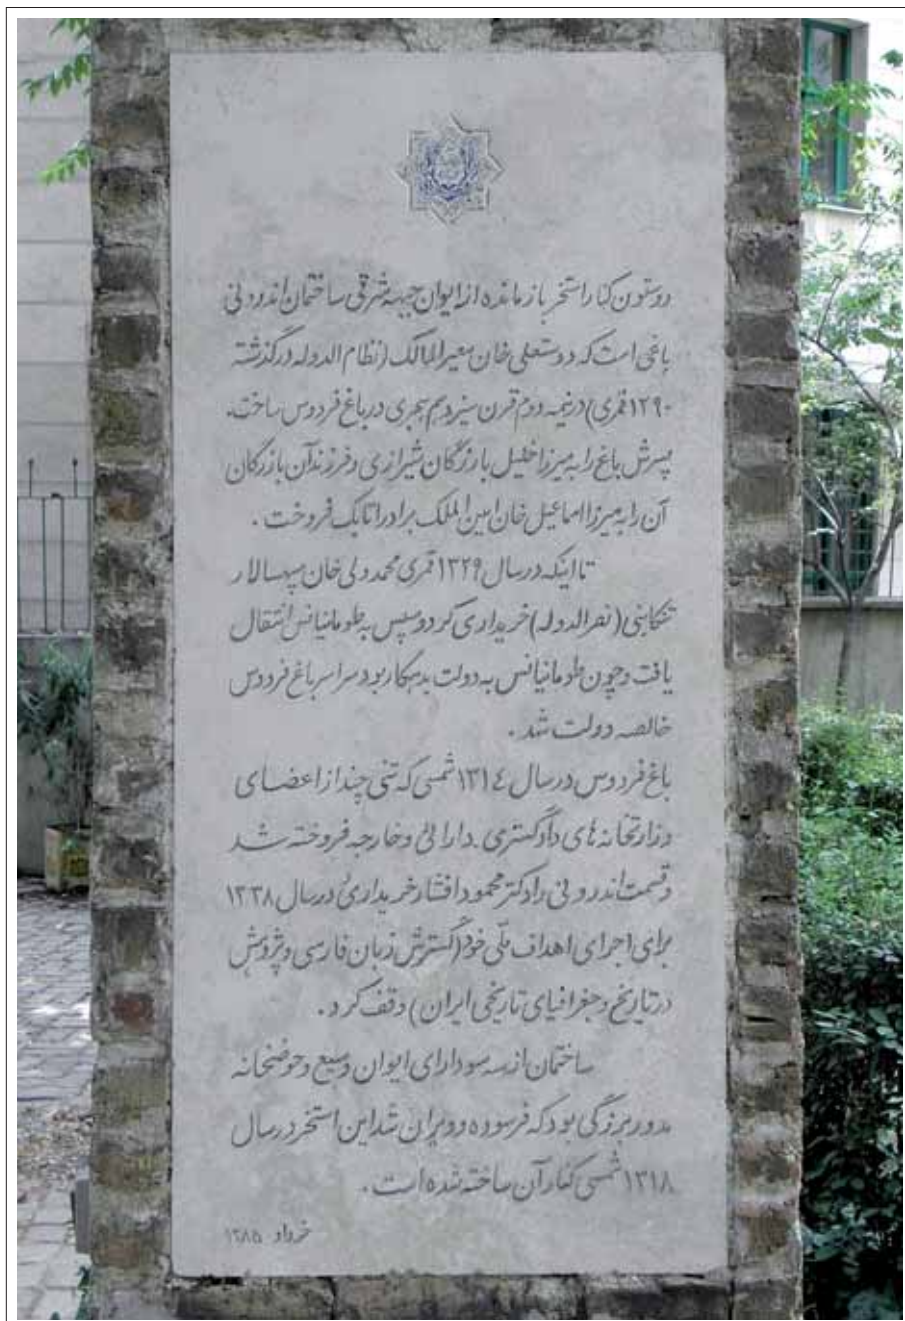 دو ستون کنار استخر بازمانده از ایوان جبهه شرقی ساختمان اندرونی
باغی است که دوستعلی خان معیرالممالک (نظام الدوله درگذشته
۱۲۹۰ قمری) در نیمه دوم قرن سیزدهم هجری در باغ فردوس ساخت.
پسرش باغ را به میرزا خلیل بازرگان شیرازی و فرزند آن بازرگان
آن را به میرزا اسماعیل خان امین الملک برادر اتابک فروخت.
تا اینکه در سال ۱۳۲۹ قمری محمد ولی خان سپهسالار
تنکابنی (نصرالدوله) خریداری کرد و سپس به طومانیانس انتقال
یافت و چون طومانیانس به دولت بدهکار بود سراسر باغ فردوس
خالصه دولت شد.
باغ فردوس در سال ۱۳۱۴ شمسی که تنی چند از اعضای
وزارتخانه های دادگستری. دارائی و خارجه فروخته شد
و قسمت اندرونی را دکتر محمود افشار خریداری و در سال ۱۳۳۸
برای اجرای اهداف ملّی خود (گسترش زبان فارسی و پژوهش
در تاریخ و جغرافیای تاریخی ایران) وقف کرد.
ساختمان از سه سو دارای ایوان وسیع و حوضخانه
مدور بزرگی بود که فرسوده و ویران شد این استخر در سال
۱۳۱۸ شمسی کنار آن ساخته شده است.
خرداد ۱۳۸۵